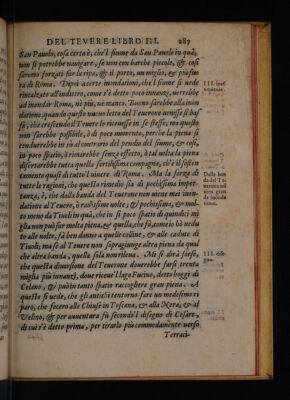 DEL TEVERE LIBRO III. 287
San Pauolo, cosa certa è, che'l fiume da San Pauolo in quà,
non si potrebbe nauigare, se non con barche picole, & cosi
saremo forzati far la ripa, & il porto, un miglio, & piu fuo
ra di Roma. Dipoi acerte inundationi, che'l fiume si uede
rincalzato all'indietro, come s'è detto poco innanzi, uerrebbe
ad inondar Roma, nè più, nè manco. Buono sarebbe alla inon
datione, quando questo nuouo letto del Teuerone uenisse di bas
so, che crescendo il Teuere lo riceuesse in se stesso, ma questo
non sarebbe possibile, ò di poco momento, perche la piena si
condurrebbe in sù al contrario del pendio del fiume, & cosi,
in poco spatio, ò rimarebbe senza effetto, ò tal uolta la piena
isforzarebbe tutta quella fertilissima campagna, ch'è il sosten
tamento quasi di tutto l'uiuere di Roma. Ma la forza di
tutte le ragioni, che questo rimedio sia di pochissima impor-
tanza, è, che dalla banda del Teuerone non uiene mai inon-
datione al Teuere, ò radissime uolte, & pochissime, & mol-
to meno da Tiuoli in quà, che in si poco spatio di quindici mi
glia non può far molta piena, & quella, che fà, come io hò uedu
to alle uolte, fà ben danno à quelle colline, & alle cadute di
Tiuoli; ma se al Teuere non sopragiunge altra piena da qual
che altra banda, quella sola non rileua. Mi si dirà forse,
che questa diuersione del Teuerone dourebbe farsi trenta
miglia più innanzi, doue riceue'l lago Fucino, detto hoggi di
Celano, & può in tanto spatio raccogliere gran piena. A
questo si uede, che gli antichi tentorno fare un medesimo ri
paro, che fecero alle Chiuse in Toscana, & alla Nera, & al
Velino, & per auuentura fù secondo'l disegno di Cesare,
di cui s'è detto prima, per tirarlo più commodamente uerso
Terraci-
Dalla ban
da del Te
uerone nō
uien gran
de inonda
tione.